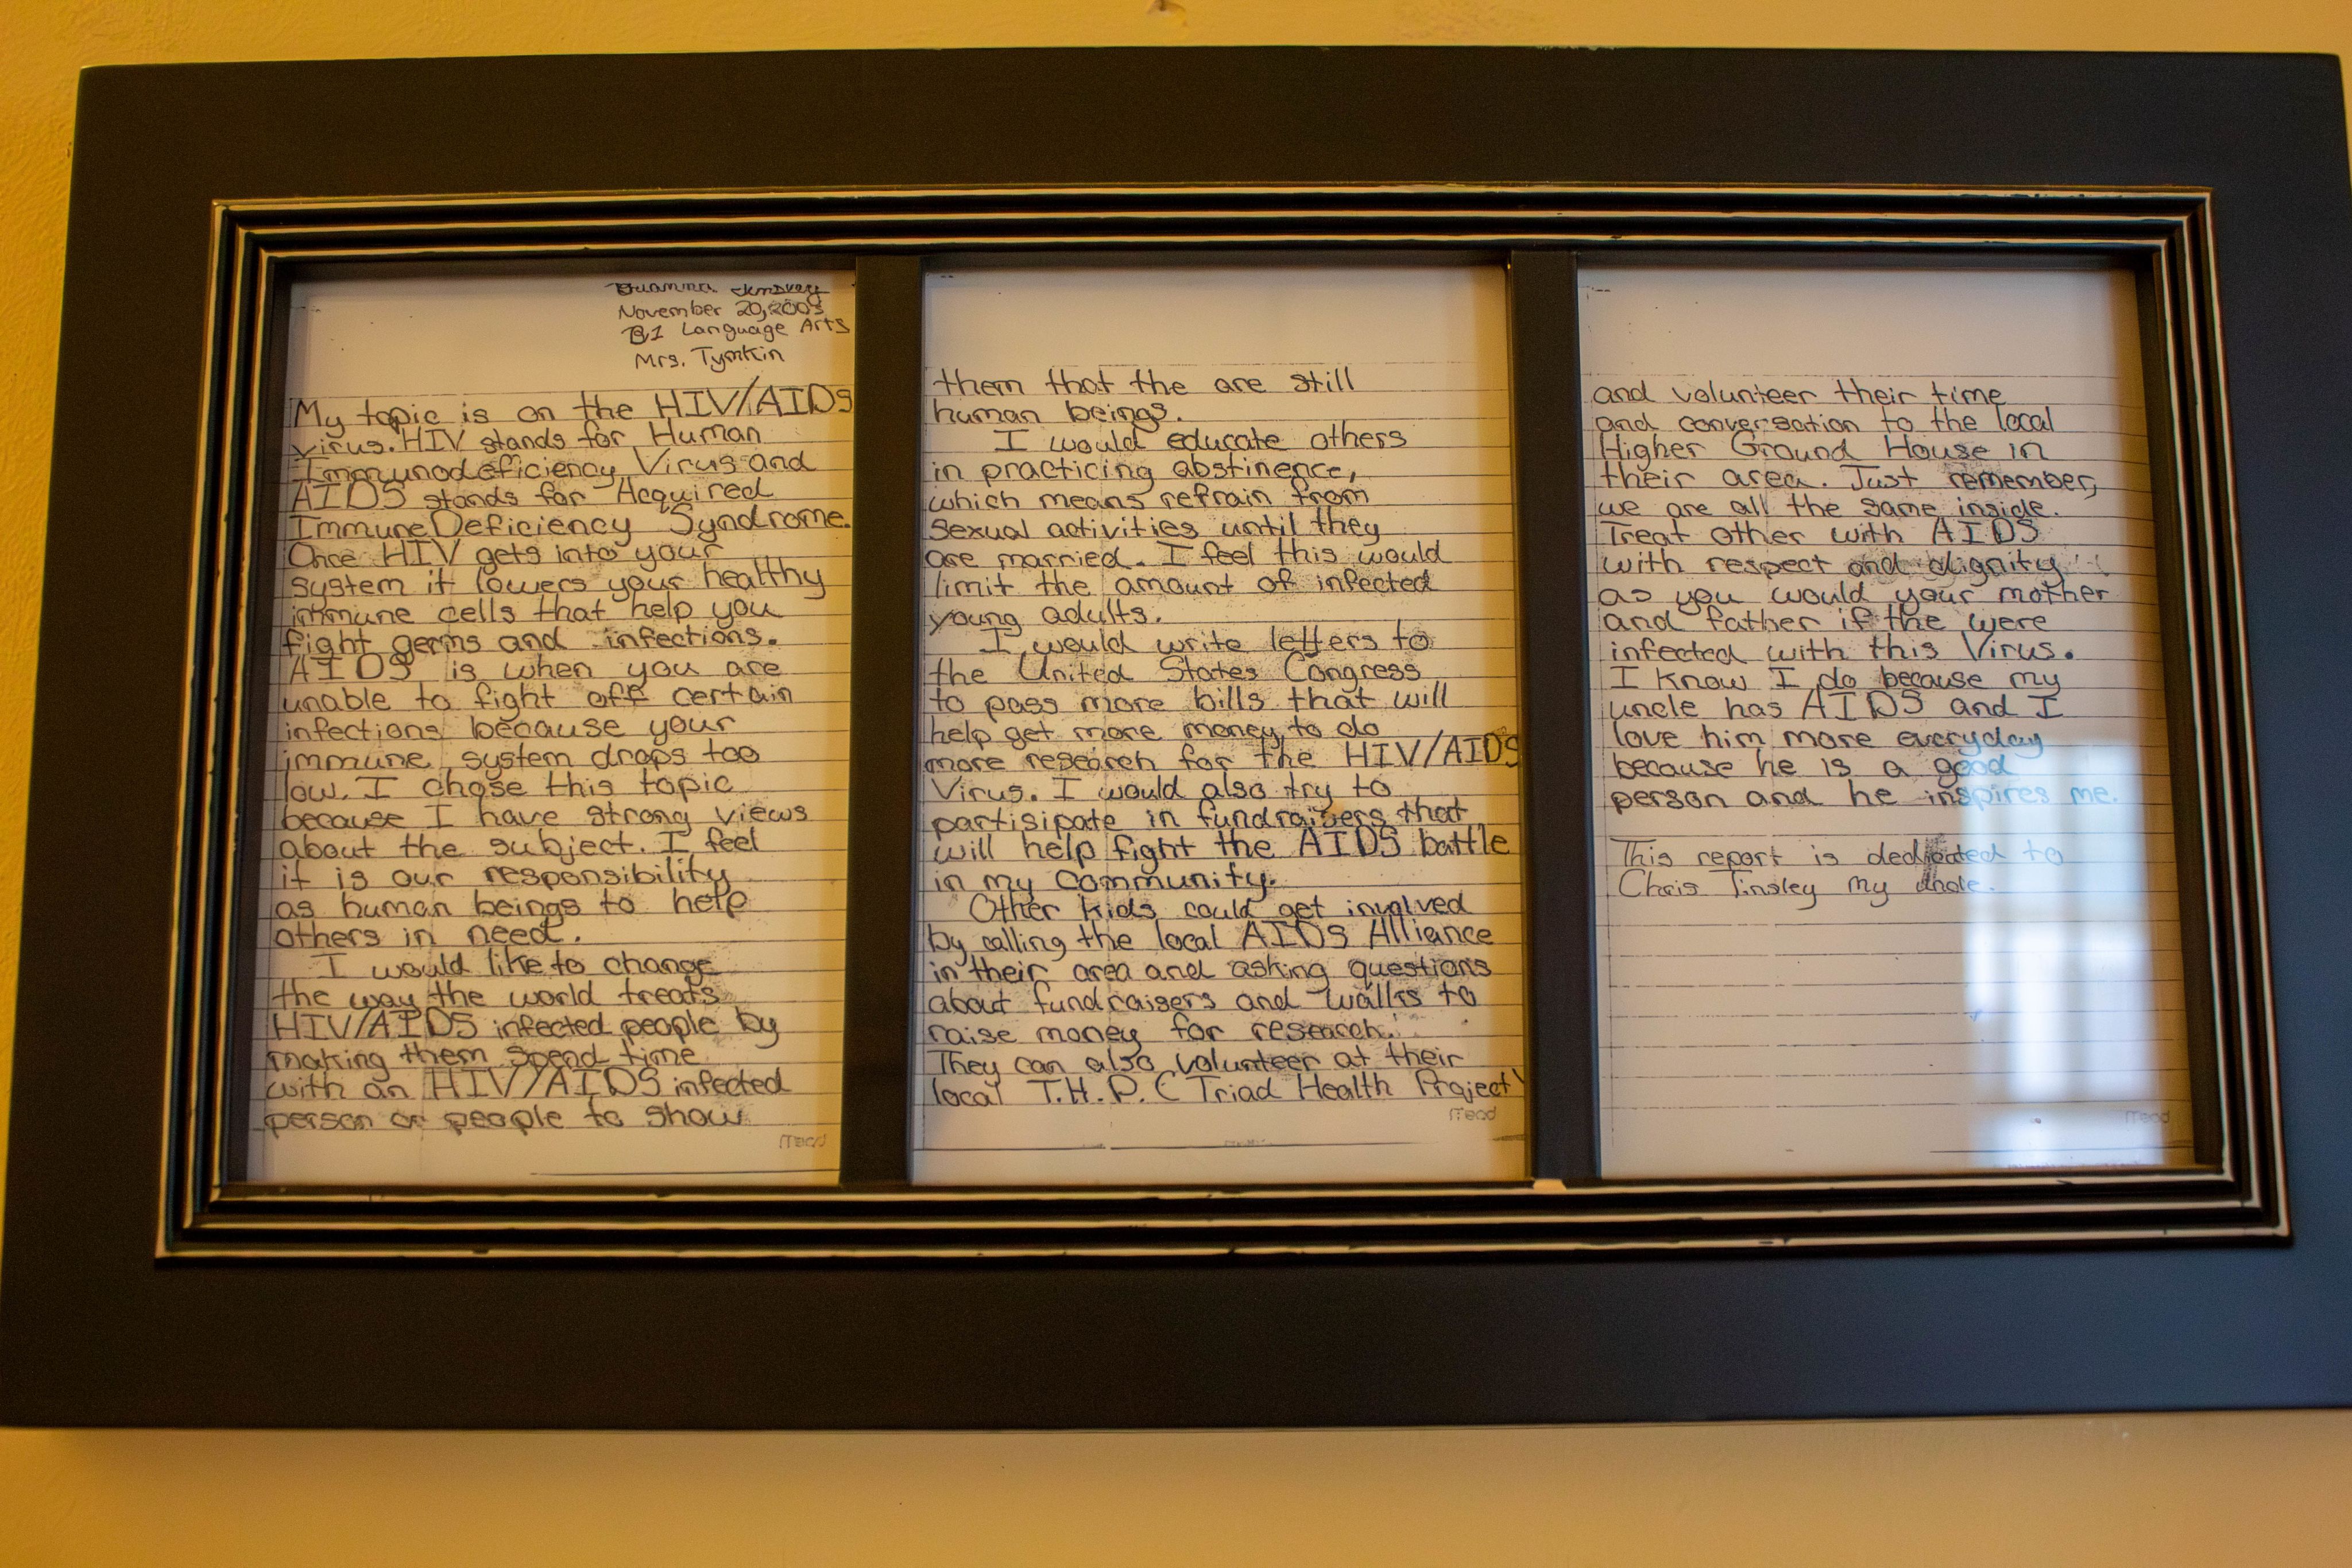 November 20, 2003
B1 Language Arts
Mrs. Tymkin
My topic is on the HIV/AIDS
virus. HIV stands for Human
Immunodeficiency Virus and
AIDS stands for Acquired
Immune Deficiency Syndrome.
Once HIV gets into your
system it lowers your healthy
immune cells that help you
fight germs and infections.
AIDS is when you are
unable to fight off certain
infections because your
immune system drops too
low. I chose this topic
because I have strong views
about the subject. I feel
it is our responsibility
as human beings to help
others in need.
I would like to change
the way the world treats
HIV/AIDS infected people by
making them spend time
with an HIV/AIDS infected
person or people to show
Mead
them that the are still
human beings.
I would educate others
in practicing abstinence,
which means refrain from
sexual activities until they
are married. I feel this would
limit the amount of infected
young adults.
I would write letters to
the United States Congress
to pass more bills that will
help get more money to do
more research for the HIV/AIDS
Virus. I would also try to
partisipate in fundraisers that
will help fight the AIDS battle
in my community.
Other kids could get involved
by calling the local AIDS Alliance
in their area and asking questions
about fundraisers and walks to
raise money for research.
They can also volunteer at their
local T.H.P. (Triad Health Project)
Mead
and volunteer their time
and conversation to the local
Higher Ground House in
their area. Just remember,
we are all the same inside.
Treat other with AIDS
with respect and dignity
as you would your mother
and father if the were
infected with this Virus.
I know I do because my
uncle has AIDS and I
love him more everyday
because he is a good
person and he inspires me.
This report is dedicated to
Chris Tinsley my uncle.
Mead